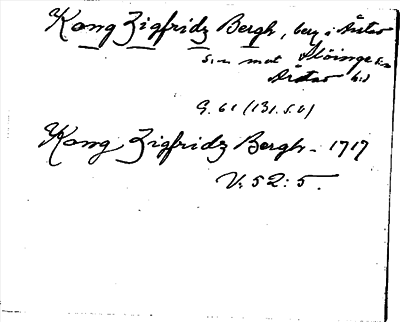 Kong Zigfridz Bergh, berg i Årstad
s:n mot Slöinge s:n
Årstad hd
G. 61 (131. s. 6)
Kong Zigfridz Bergh - 1717
V. 52: 5.